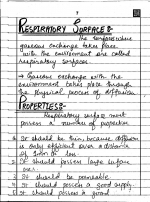 RESPIRATORY SURFACES:-
The surfaces where
gaseous exchange takes place
with the environment are called
respiratory surfaces.
→ Gaseous exchange with the
environment takes place through
the physical process of diffusion.
PROPERTIES:-
Respiratory surface must
possess a number of properties
It should be thin because diffusion
is only efficient over a distance
of 1mm or less.
It should possess large surface
area.
It should be permeable
It should possess a good supply.
It should possess a good